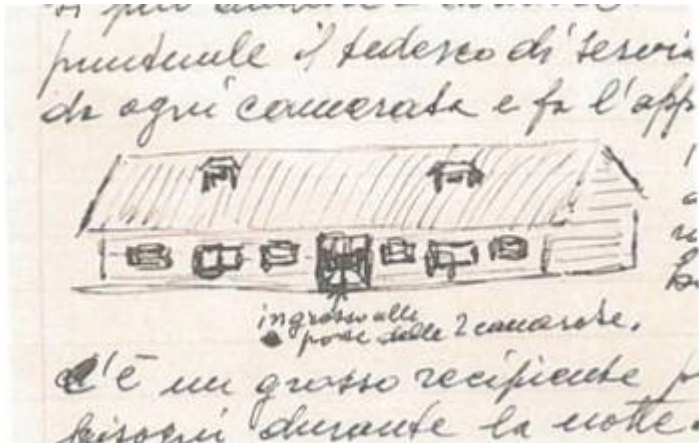 puntuale il tedesco di servi
di ogni camerata e fa l'app
ingresso alle
porte delle 2 camerate.
C'è un grosso recipiente p
bisogni durante la notte